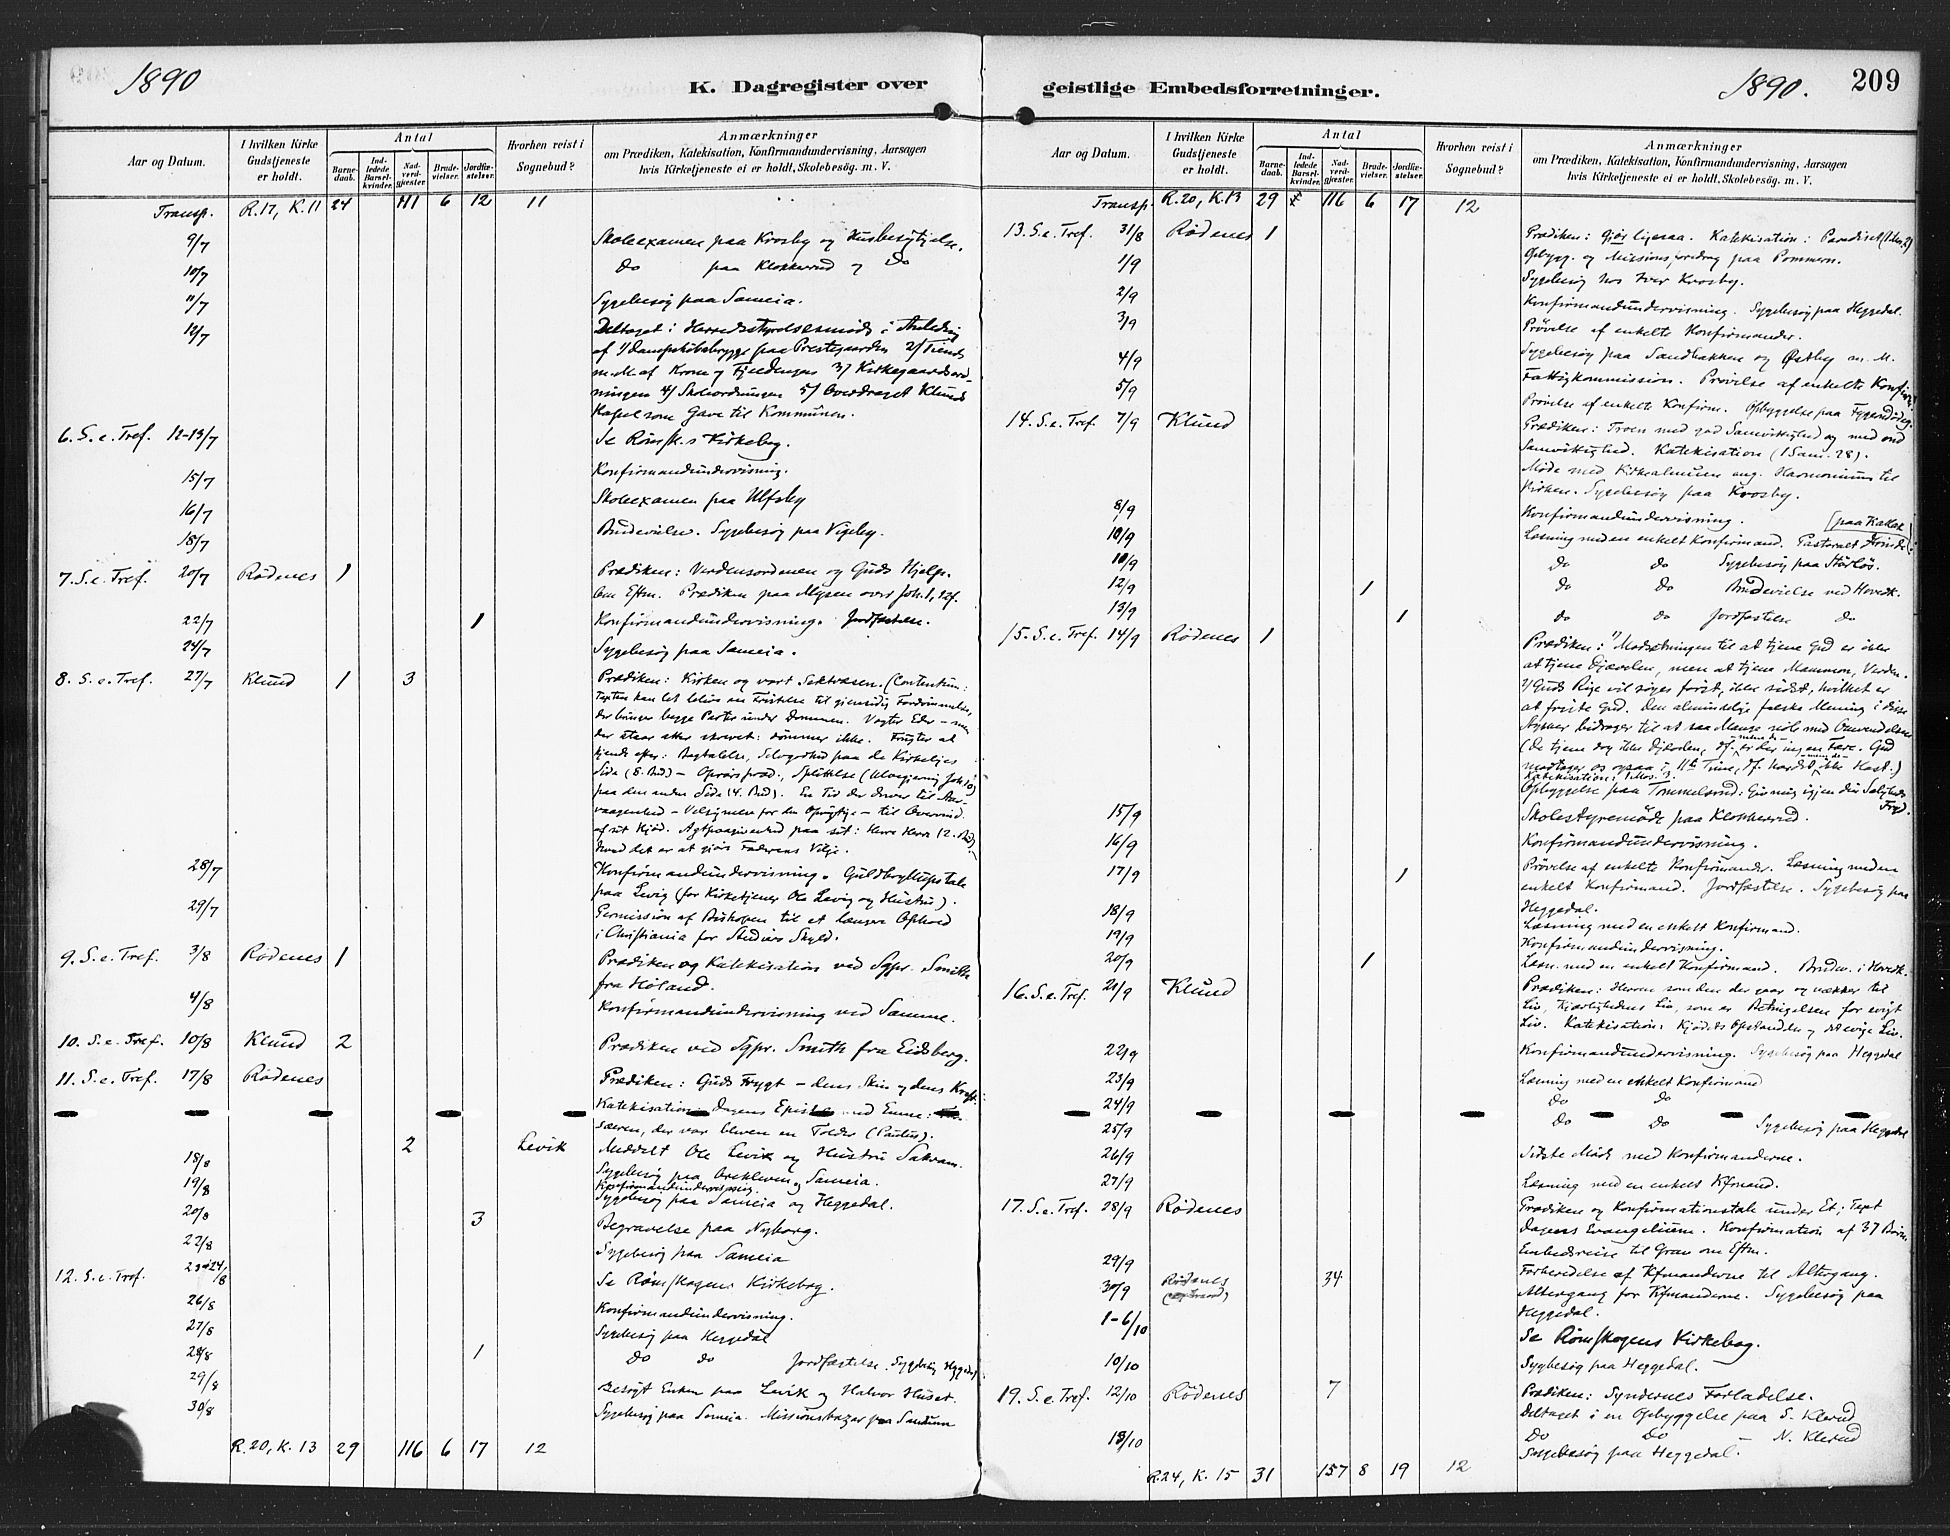 1890
K. Dagregister over
Aar og Datum.
I hvilken Kirke Gudstjeneste er holdt.
Antal
Barne-daab.
Ind-ledede Barsel-kvinder.
Nad-verd-gjæster
Brude-vielser.
Jordfæ-stelser.
Hvorhen reist i Sognebud?
Anmærkninger
om Prædiken, Katekisation, Konfirmandundervisning, Aarsagen
hvis Kirketjeneste ei er holdt, Skolebesøg. m. V.
Transp. R.17, K.11 24 111 6 12 11
9/7 Skoleexamen paa Krosby og Husbesøg
10/7 Do paa Klokkerud og Do
11/7 Sygebesøg paa Sameia.
12/7 Deltaget i Herredsstyrelsesmøde i Anledning
af 1/ Dampskibsbrygge paa Prestegaarden 2/ Tiende
m.M. af 3/ Kirkegaardsord-
ningen 4/ Skoleordningen 5/ Overdraget Klunds
Kapel som Gave til Kommunen.
6. S. e. Tref. 12-13/7 Se Rømsk.s Kirkebog.
15/7 Konfirmandundervisning.
16/7 Skoleexamen paa Ulfsby
18/7 Brudevielse. Sygebesøg paa Vigeby.
7. S. e. Tref. 20/7 Rødenes 1 Prædiken: Verdensordenen og Guds Hjelp.
Om Eftm. Prædiken paa Mysen over Joh. 1, 12f.
22/7 1 Konfirmandundervisning. Jordfæstelse.
24/7 Sygebesøg paa Sameia.
8. S. e. Tref. 27/7 Klund 1 3 Prædiken: Kirken og vort Sektvæsen. (Contentum:
Texten kan let blive en Fristelse til gjensidig Fordømmelse,
der bringer begge Parter under Dommen. Vogter Eder –
der staar atter skrevet: dømmer ikke. Frugter at
kjende efter: Bagtalelse, Selvgodhed paa de Kirkeliges
Side (8. Bud) – Splittelse
paa den anden Side (4. Bud). En Tid der driver til Aar-
vaagenhed – Velsignelse for den Oprigtige – til Overvind.
af sit Kjød. Agtpaagivenhed paa sit: Herre Herre (2. Bud)
hvad det er at gjøre Faderens Vilje.
28/7 Konfirmandundervisning. Guldbryllupstale
paa Levig (for Kirketjener Ole Levig og Hustru).
29/7 Permission af Biskopen til et længere Ophold
i Christiania for Studiers Skyld.
9. S. e. Tref. 3/8 Rødenes 1 Prædiken og Katekisation ved Sgpr. Smith
fra Høland.
4/8 Konfirmandundervisning ved Samme.
10. S. e. Tref. 10/8 Klund 2 Prædiken ved Sgpr. Smith fra Eidsberg.
11. S. e. Tref. 17/8 Rødenes Prædiken: Guds Frygt – dens Skin og dens Kraft.
Katekisation: Dagens Epistel med Emne:
sæeren, der var bleven en Tolder (Paulus).
18/8 2 Levik Meddelt Ole Levik og Hustru Sakram.
19/8 Sygebesøg paa og Sameia.
Konfirmandundervisning.
20/8 Sygebesøg paa Sameia og Heggedal.
22/8 3 Begravelse paa Nyborg.
Sygebesøg paa Sameia
12. S. e. Tref. 23-24/8 Se Rømskogens Kirkebog.
26/8 Konfirmandundervisning.
27/8 Sygebesøg paa Heggedal
28/8 1 Do Do Jordfæstelse. Sygebesøg Heggedal
29/8 Besøgt Enken paa Levik og Halvor Huset.
30/8 Sygebesøg paa Sameia. Missionsbazar paa Sandum
R.20, K.13 29 116 6 17 12
geistlige Embedsforretninger.
1890.
209
Aar og Datum.
I hvilken Kirke Gudstjeneste er holdt.
Antal
Barne-daab.
Ind-ledede Barsel-kvinder.
Nad-verd-gjæster
Brude-vielser.
Jordfæ-stelser.
Hvorhen reist i Sognebud?
Anmærkninger
om Prædiken, Katekisation, Konfirmandundervisning, Aarsagen
hvis Kirketjeneste ei er holdt, Skolebesøg. m. V.
Transp. R.20, K.13 29 116 6 17 12
13. S. e. Tref. 31/8 Rødenes 1 Prædiken: Gjør ligesaa. Katekisation: Paradiset (1 Mos. 2)
Opbygg. og Missionsforedrag paa Pommern.
1/9 Sygebesøg hos Iver Krosby.
2/9 Konfirmandundervisning. Sygebesøg paa Heggedal.
3/9 Prøvelse af enkelte Konfirmander.
4/9 Sygebesøg paa Sandbakken og Østby m. M.
5/9 Fattigkommission. Prøvelse af enkelte Konfirm.
Prøvelse af enkelte Konfirm. Opbyggelse paa
14. S. e. Tref. 7/9 Klund Prædiken: Troen med god Samvittighed og med ond
Samvittighed. Katekisation (1 Sam. 28).
Møde med Kirkealmuen ang. Harmonium til
Kirken. Sygebesøg paa Krosby.
8/9 Konfirmandundervisning. [paa Kallak
10/9 Læsning med en enkelt Konfirmand. Pastoralt Ærinde
10/9 Do Do Sygebesøg paa Stårløs.
12/9 1 Do Do Brudevielse ved Hovedk.
13/9 1 Do Do Jordfæstelse Do
15. S. e. Tref. 14/9 Rødenes 1 Prædiken: 1/ Modsætningen til at tjene Gud er ikke
at tjene Djævelen, men at tjene Mammon, Verden.
2/ Guds Rige vil søges først, ikke sidst, hvilket er
at friste Gud. Den almindelige falske Mening i disse
Stykker bidrager til at saa Mange nøle med Omvendelsen
(De tjene dog ikke Djævelen, mene de er der ingen Fare. Gud
modtager os ogsaa i 11te Time, mene de ikke Hast.)
Katekisation: 1 Mos. 3.
Opbyggelse paa Tommelsrud: Giv mig igjen din Saligheds
Fryd.
15/9 Skolestyremøde paa Klokkerud.
16/9 Konfirmandundervisning.
17/9 1 Prøvelse af enkelte Konfirmander. Læsning med en
enkelt Konfirmand. Jordfæstelse. Sygebesøg paa
Heggedal.
18/9 Læsning med en enkelt Konfirmand.
19/9 Konfirmandundervisning.
20/9 1 Læsn. med en enkelt Konfirmand. Brudev. i Hovedk.
16. S. e. Tref. 21/9 Klund Prædiken: Herren som den der gaar og vækker til
Liv, Kjærlighedens Liv, som er Betingelsen for evigt
Liv. Katekisation: Kjødets Opstandelse og det evige Liv.
22/9 Konfirmandundervisning. Sygebesøg paa Heggedal
23/9 Læsning med en enkelt Konfirmand
24/9 Do Do
25/9 Do Do Sygebesøg paa Heggedal
26/9 Sidste Møde med Konfirmanderne.
27/9 Læsning med en enkelt Kfmand.
17. S. e. Tref. 28/9 Rødenes Prædiken og Konfirmationstale under Et; Text
Dagens Evangelium. Konfirmation af 37 Børn
Embedsreise til Grav om Eftm.
29/9 Forberedelse af Kfmanderne til Altergang.
30/9 Rødenes 34 Altergang for Kfmanderne. Sygebesøg paa
Heggedal.
1-6/10 Se Rømskogens Kirkebog.
10/10 Sygebesøg paa Heggedal.
19. S. e. Tref. 12/10 Rødenes 7 Prædiken: Syndernes Forladelse.
Deltaget i en Opbyggelse paa S. Klerud
13/10 Do Do – N. Klerud
Sygebesøg paa Heggedal.
R.24, K.15 31 157 8 19 12